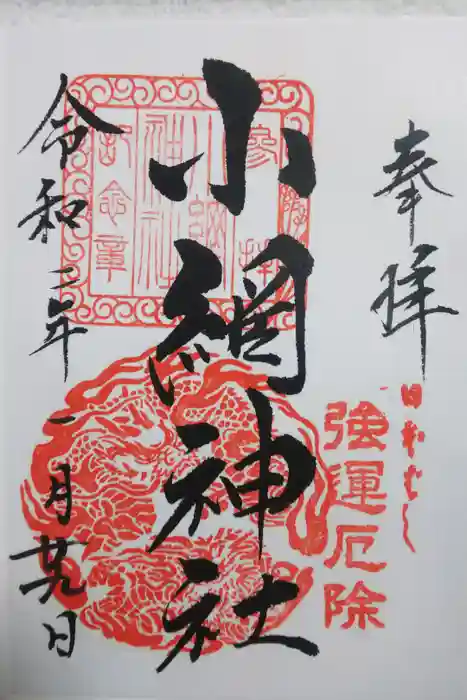 奉拝
日本ばし
強運厄除
小網神社
参拝
小網
神社
記念章
令和二年一月廿九日